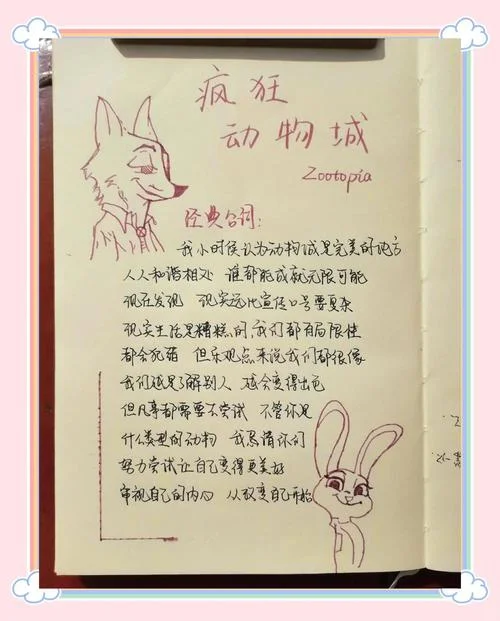 疯狂
动物城
Zootopia
经典台词:
我小时侯认为动物城是完美的地方
人人和谐相处 谁都能成就无限可能
现在发现 现实远比宣传口号要复杂
现实生活是糟糕的,我们都有局限性
都会犯错 但乐观点来说我们都很像
我们越是了解别人 越会变得出色
但凡事都需要去尝试 不管你是
什么类型的动物 我恳请你们
努力尝试让自己变得更美好
审视自己的内心 从改变自己开始